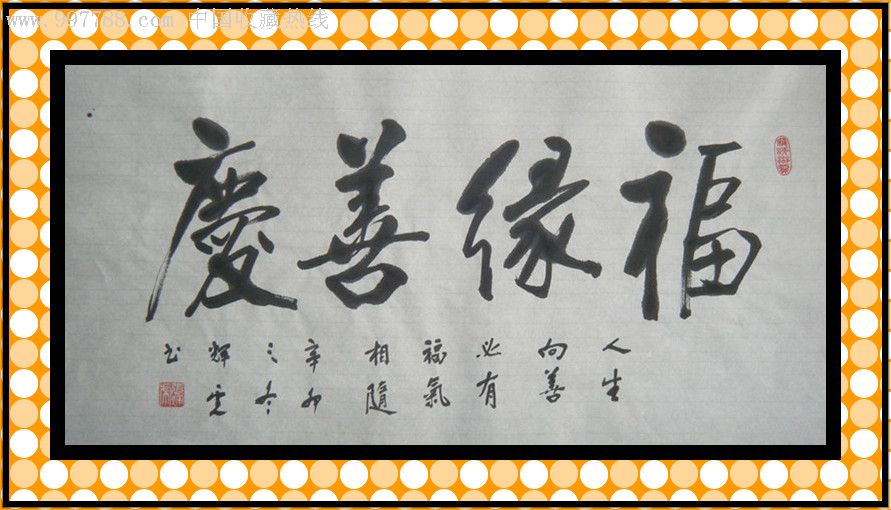 www.997788.com 中国收藏热线
福緣善慶
人生
向善
必有
福氣
相隨
辛卯
之冬
书